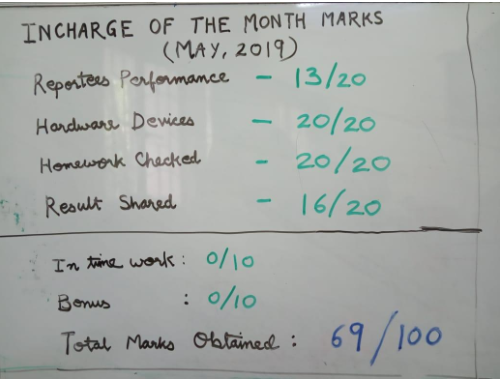 INCHARGE OF THE MONTH MARKS
(MAY, 2019)
Reportees Performance - 13/20
Hardware Devices - 20/20
Homework Checked - 20/20
Result Shared - 16/20
In time work: 0/10
Bonus : 0/10
Total Marks Obtained : 69/100